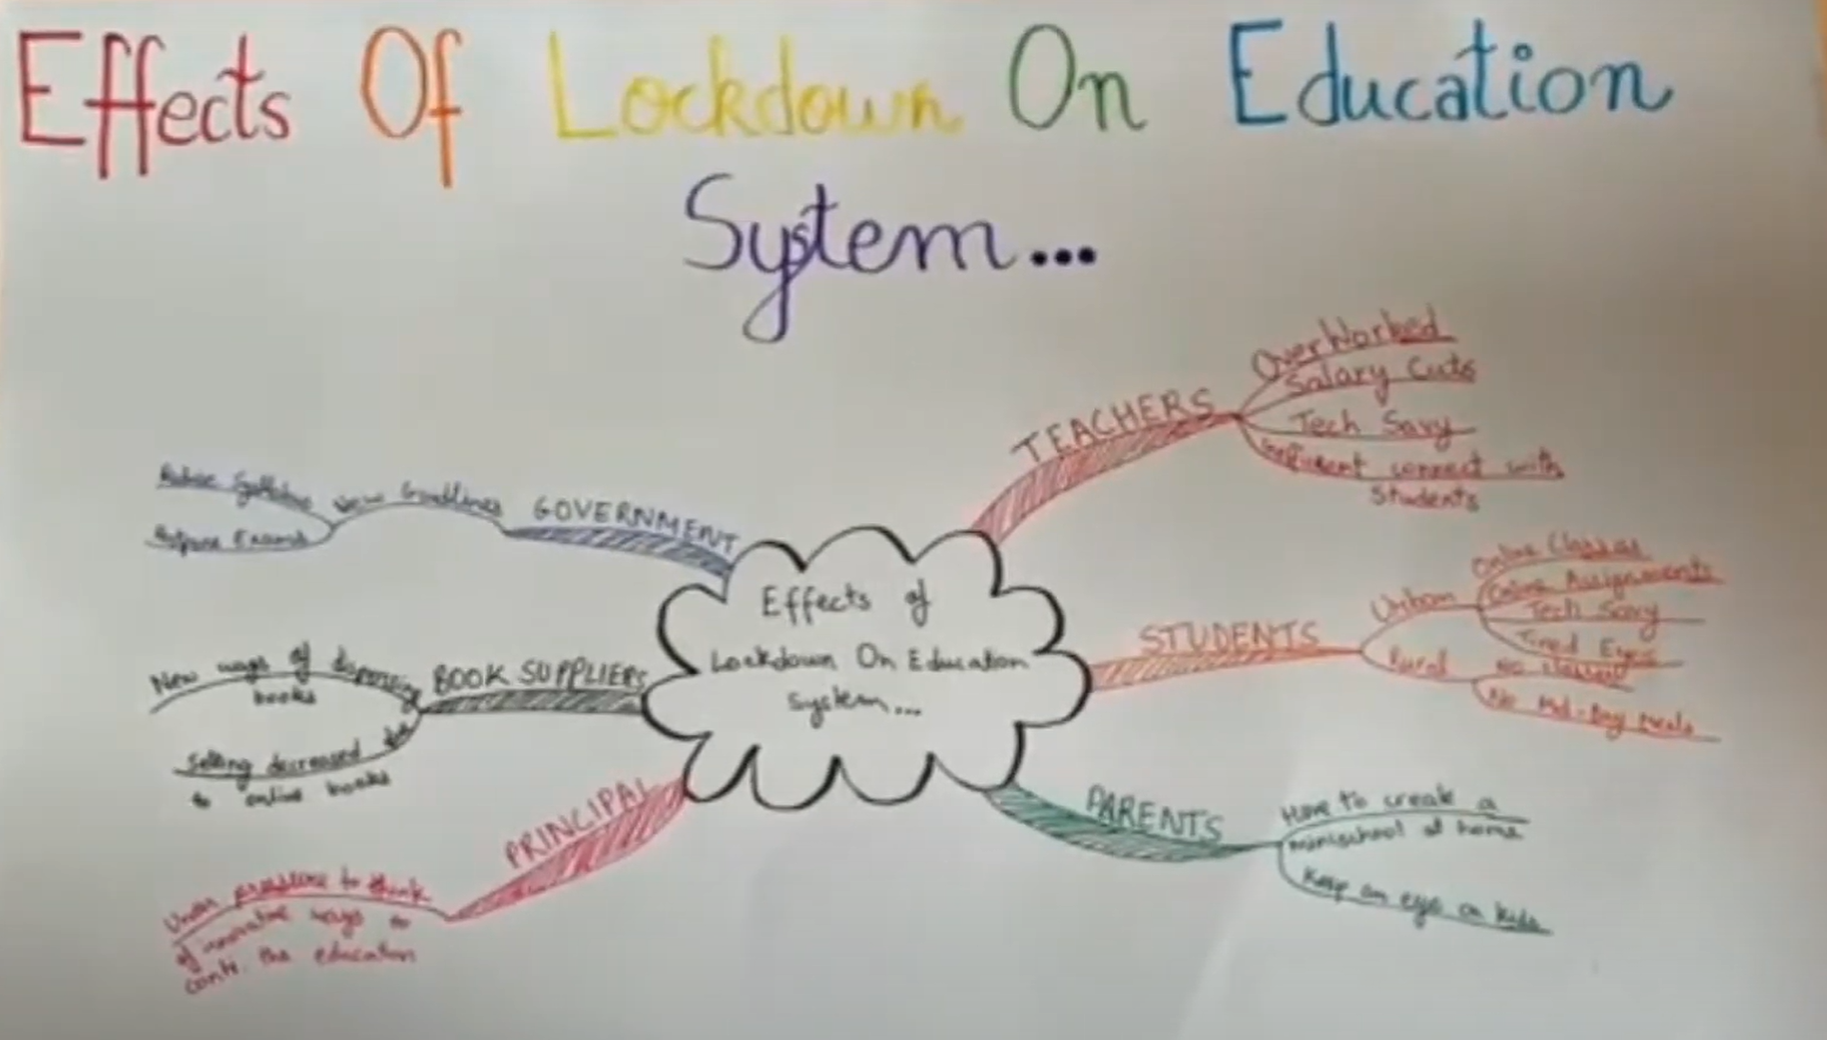 Effects Of Lockdown On Education
System...
OverWorked
Salary Cuts
TEACHERS
Tech Savy
connect with
Students
New
GOVERNMENT
Postpone Exams
Effects of
Lockdown On Education
System...
Online Classes
Online Assignments
Urban
Tech Savy
STUDENTS
Tired Eyes
Rural
No classes
No Mid-Day Meals
New ways of
books
BOOK SUPPLIERS
Selling decreased due
to online books
PRINCIPAL
Under pressure to think
of innovative ways to
conti. the education
PARENTS
How to create a
minischool at home
Keep an eye on kids